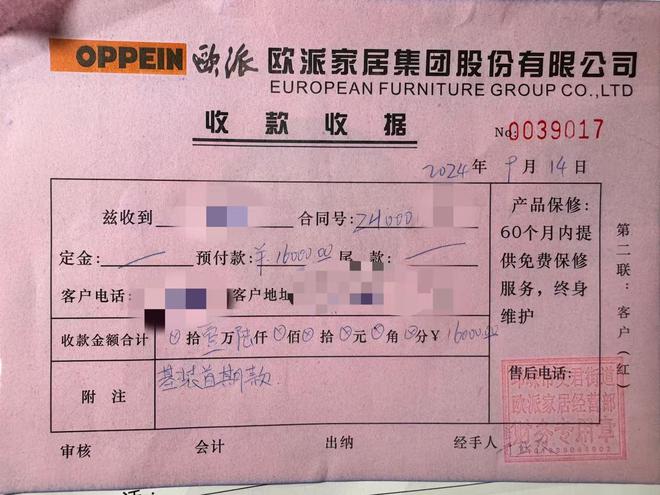 OPPEIN 欧派 欧派家居集团股份有限公司
EUROPEAN FURNITURE GROUP CO.,LTD
收款收据
No: 0039017
2024 年 9 月 14 日
兹收到 合同号: 24000
定金: 预付款: ¥16000.00 尾款:
客户电话: 客户地址:
收款金额合计 ⊗拾壹万陆仟⊗佰⊗拾⊗元⊗角⊗分¥16000.00
附注 基装首期款
产品保修:
60个月内提
供免费保修
服务，终身
维护
售后电话:
街道
欧派家居经营部
财务专用章
第二联：客户（红）
审核 会计 出纳 经手人